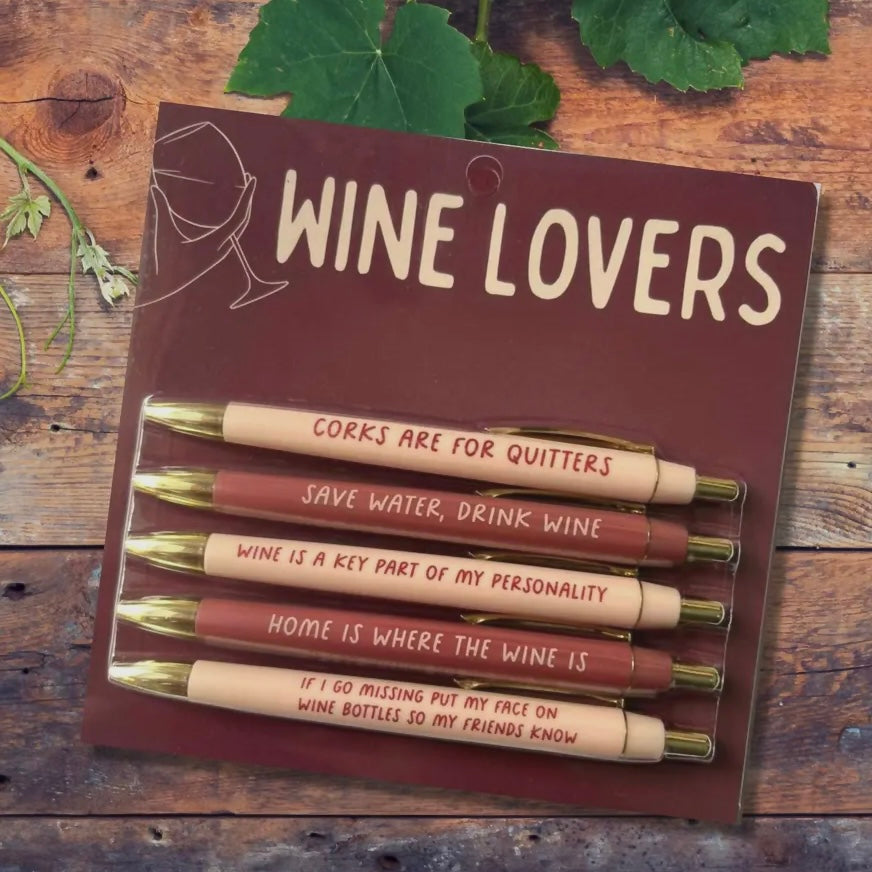 WINE LOVERS
CORKS ARE FOR QUITTERS
SAVE WATER, DRINK WINE
WINE IS A KEY PART OF MY PERSONALITY
HOME IS WHERE THE WINE IS
IF I GO MISSING PUT MY FACE ON
WINE BOTTLES SO MY FRIENDS KNOW